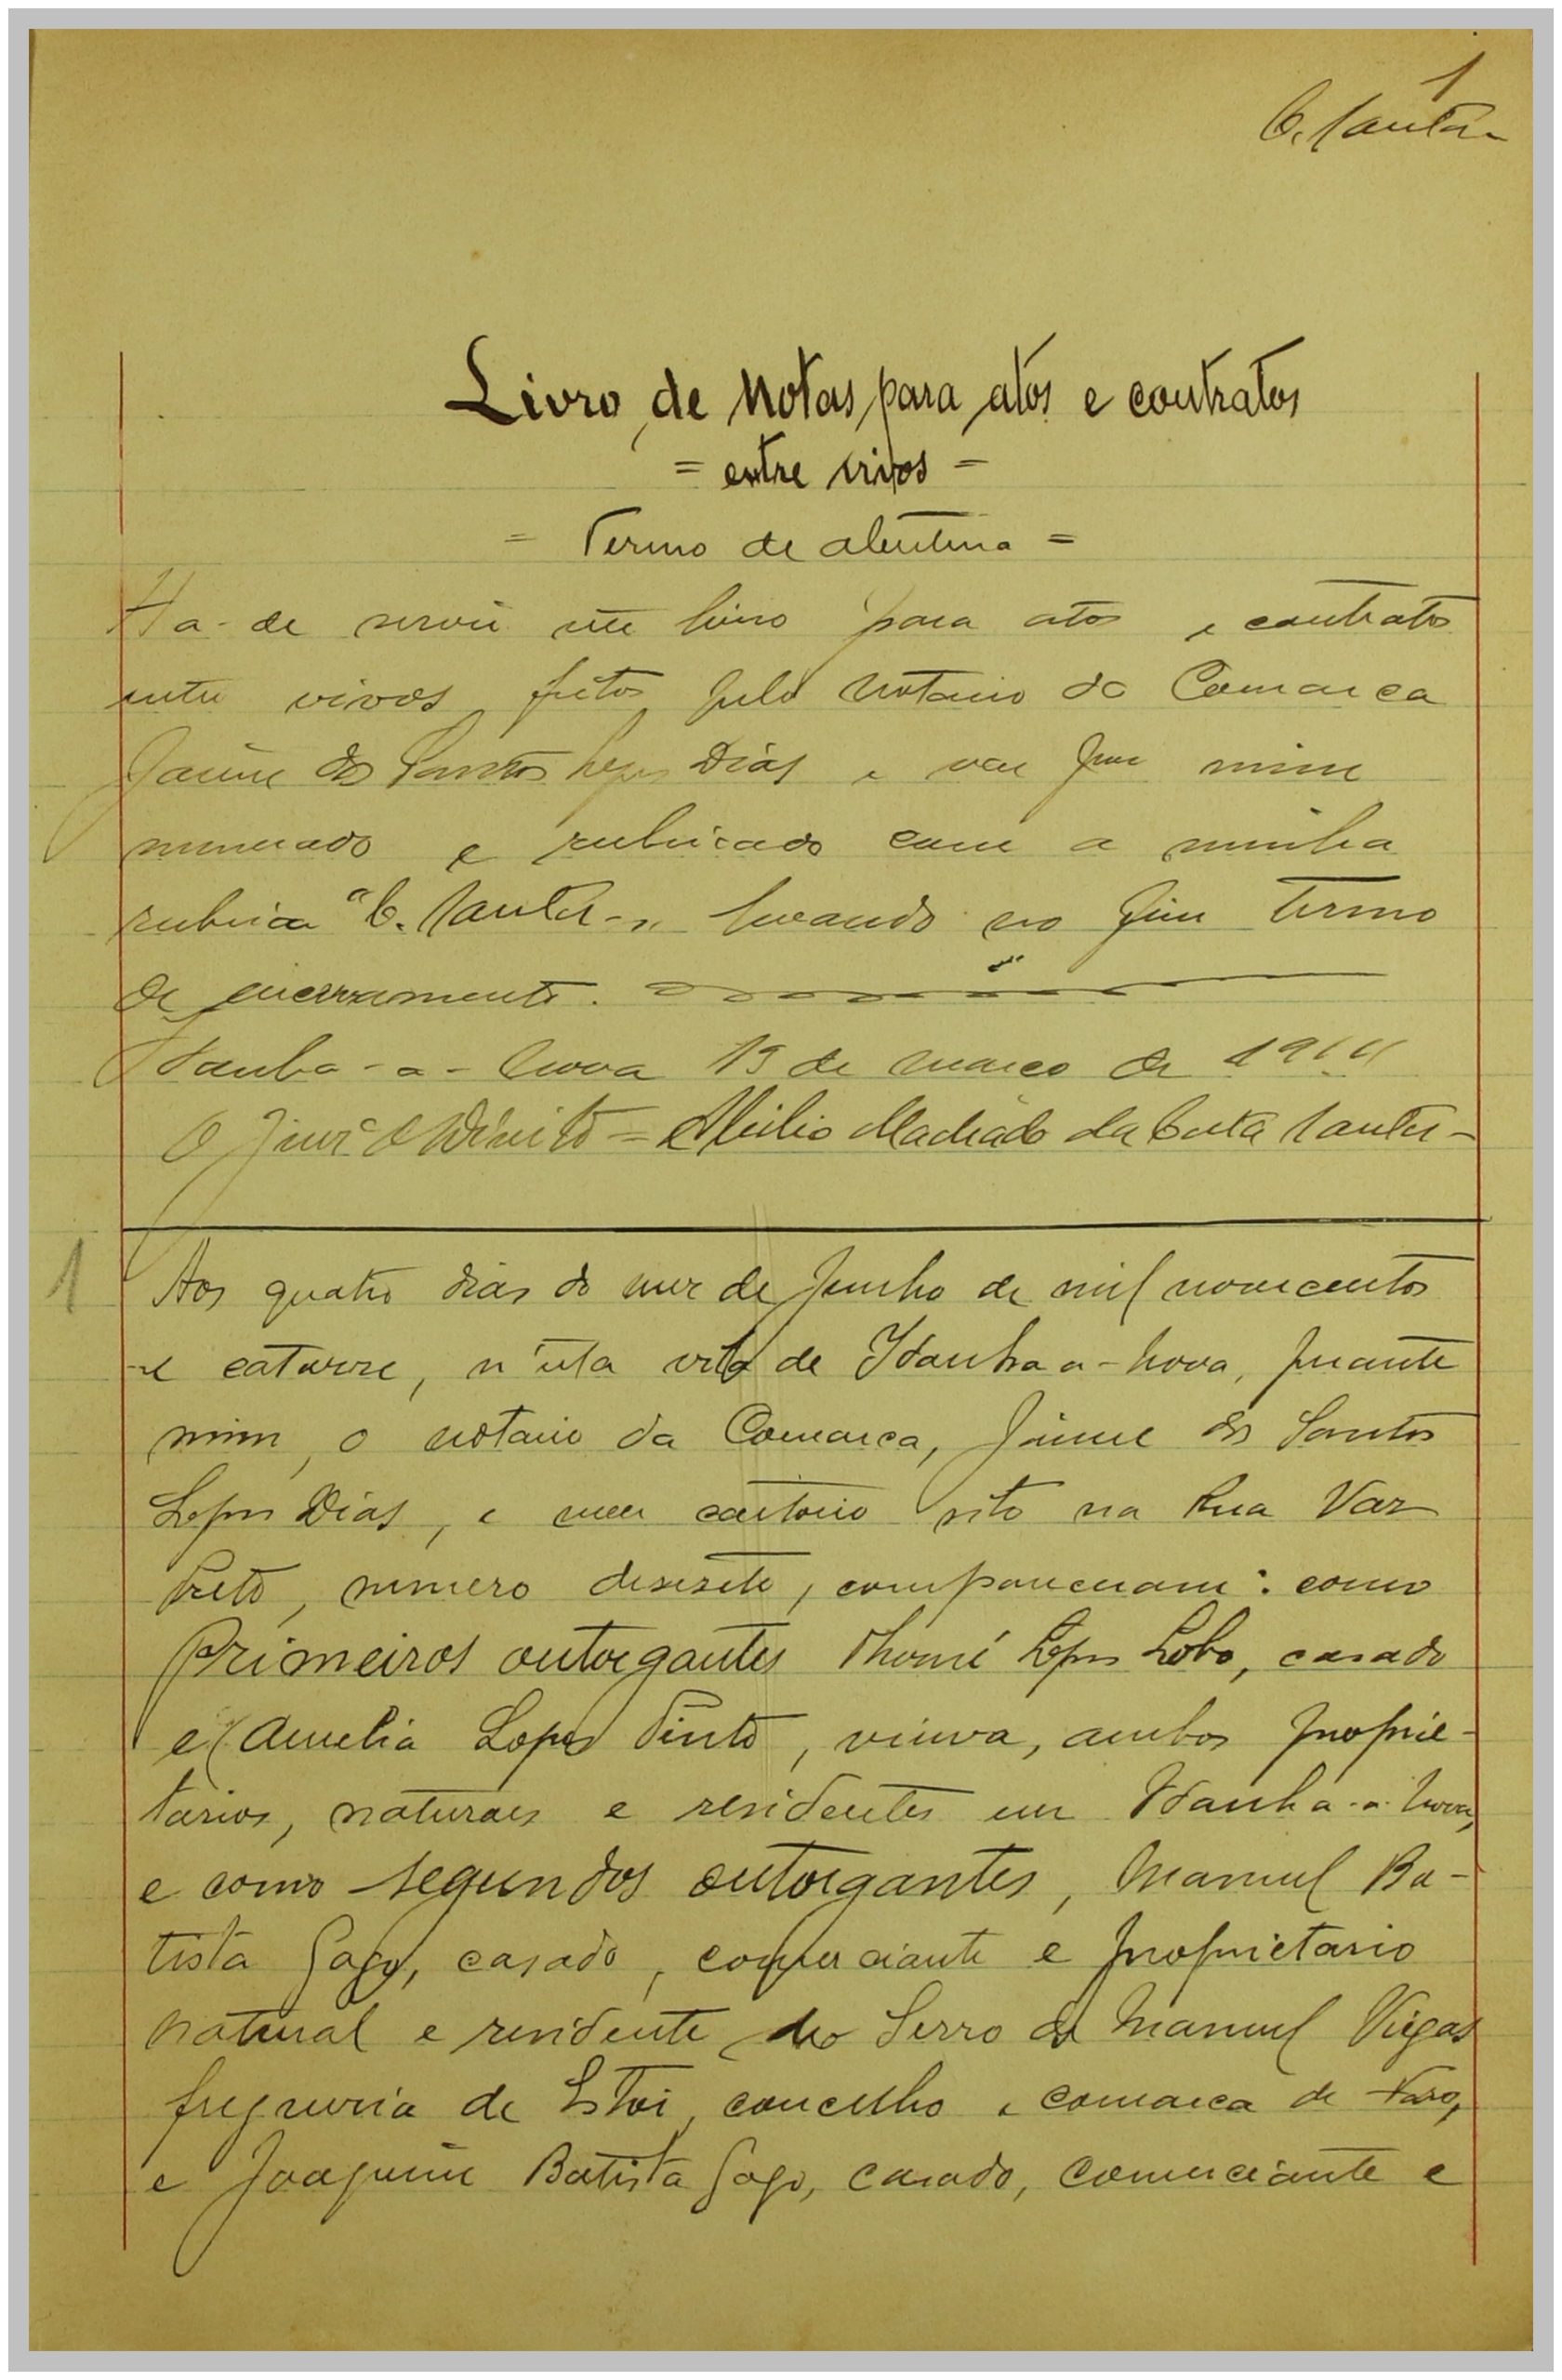 1
C. Santos
Livro de Notas para atos e contratos
= entre vivos =
= Termo de abertura =
Ha-de servir este livro para atos e contratos
entre vivos feitos pelo Notario da Comarca
Jaime dos Santos Lopes Dias e vae por mim
numerado e rubricado com a minha
rubrica "C. Santos", levando no fim termo
de encerramento.
Idanha-a-Nova 13 de março de 1914
O Juiz de Direito = Abilio Machado da Costa Santos
1
Aos quatro dias do mez de Junho de mil novecentos
e catorze, n'esta vila de Idanha a-Nova, perante
mim, o notario da Comarca, Jaime dos Santos
Lopes Dias, e meu cartorio sito na Rua Vaz
Preto, numero deseséte, compareceram: como
Primeiros outorgantes Thomé Lopes Lobo, casado
e Amelia Lopes Pinto, viuva, ambos proprie-
tarios, naturaes e residentes em Idanha-a-Nova,
e como segundos outorgantes, Manuel Ba-
tista Gago, casado, comerciante e proprietario
natural e residente no Serro de Manuel Viegas
freguezia de Estoi, concelho e comarca de Faro,
e Joaquim Batista Gago, casado, comerciante e